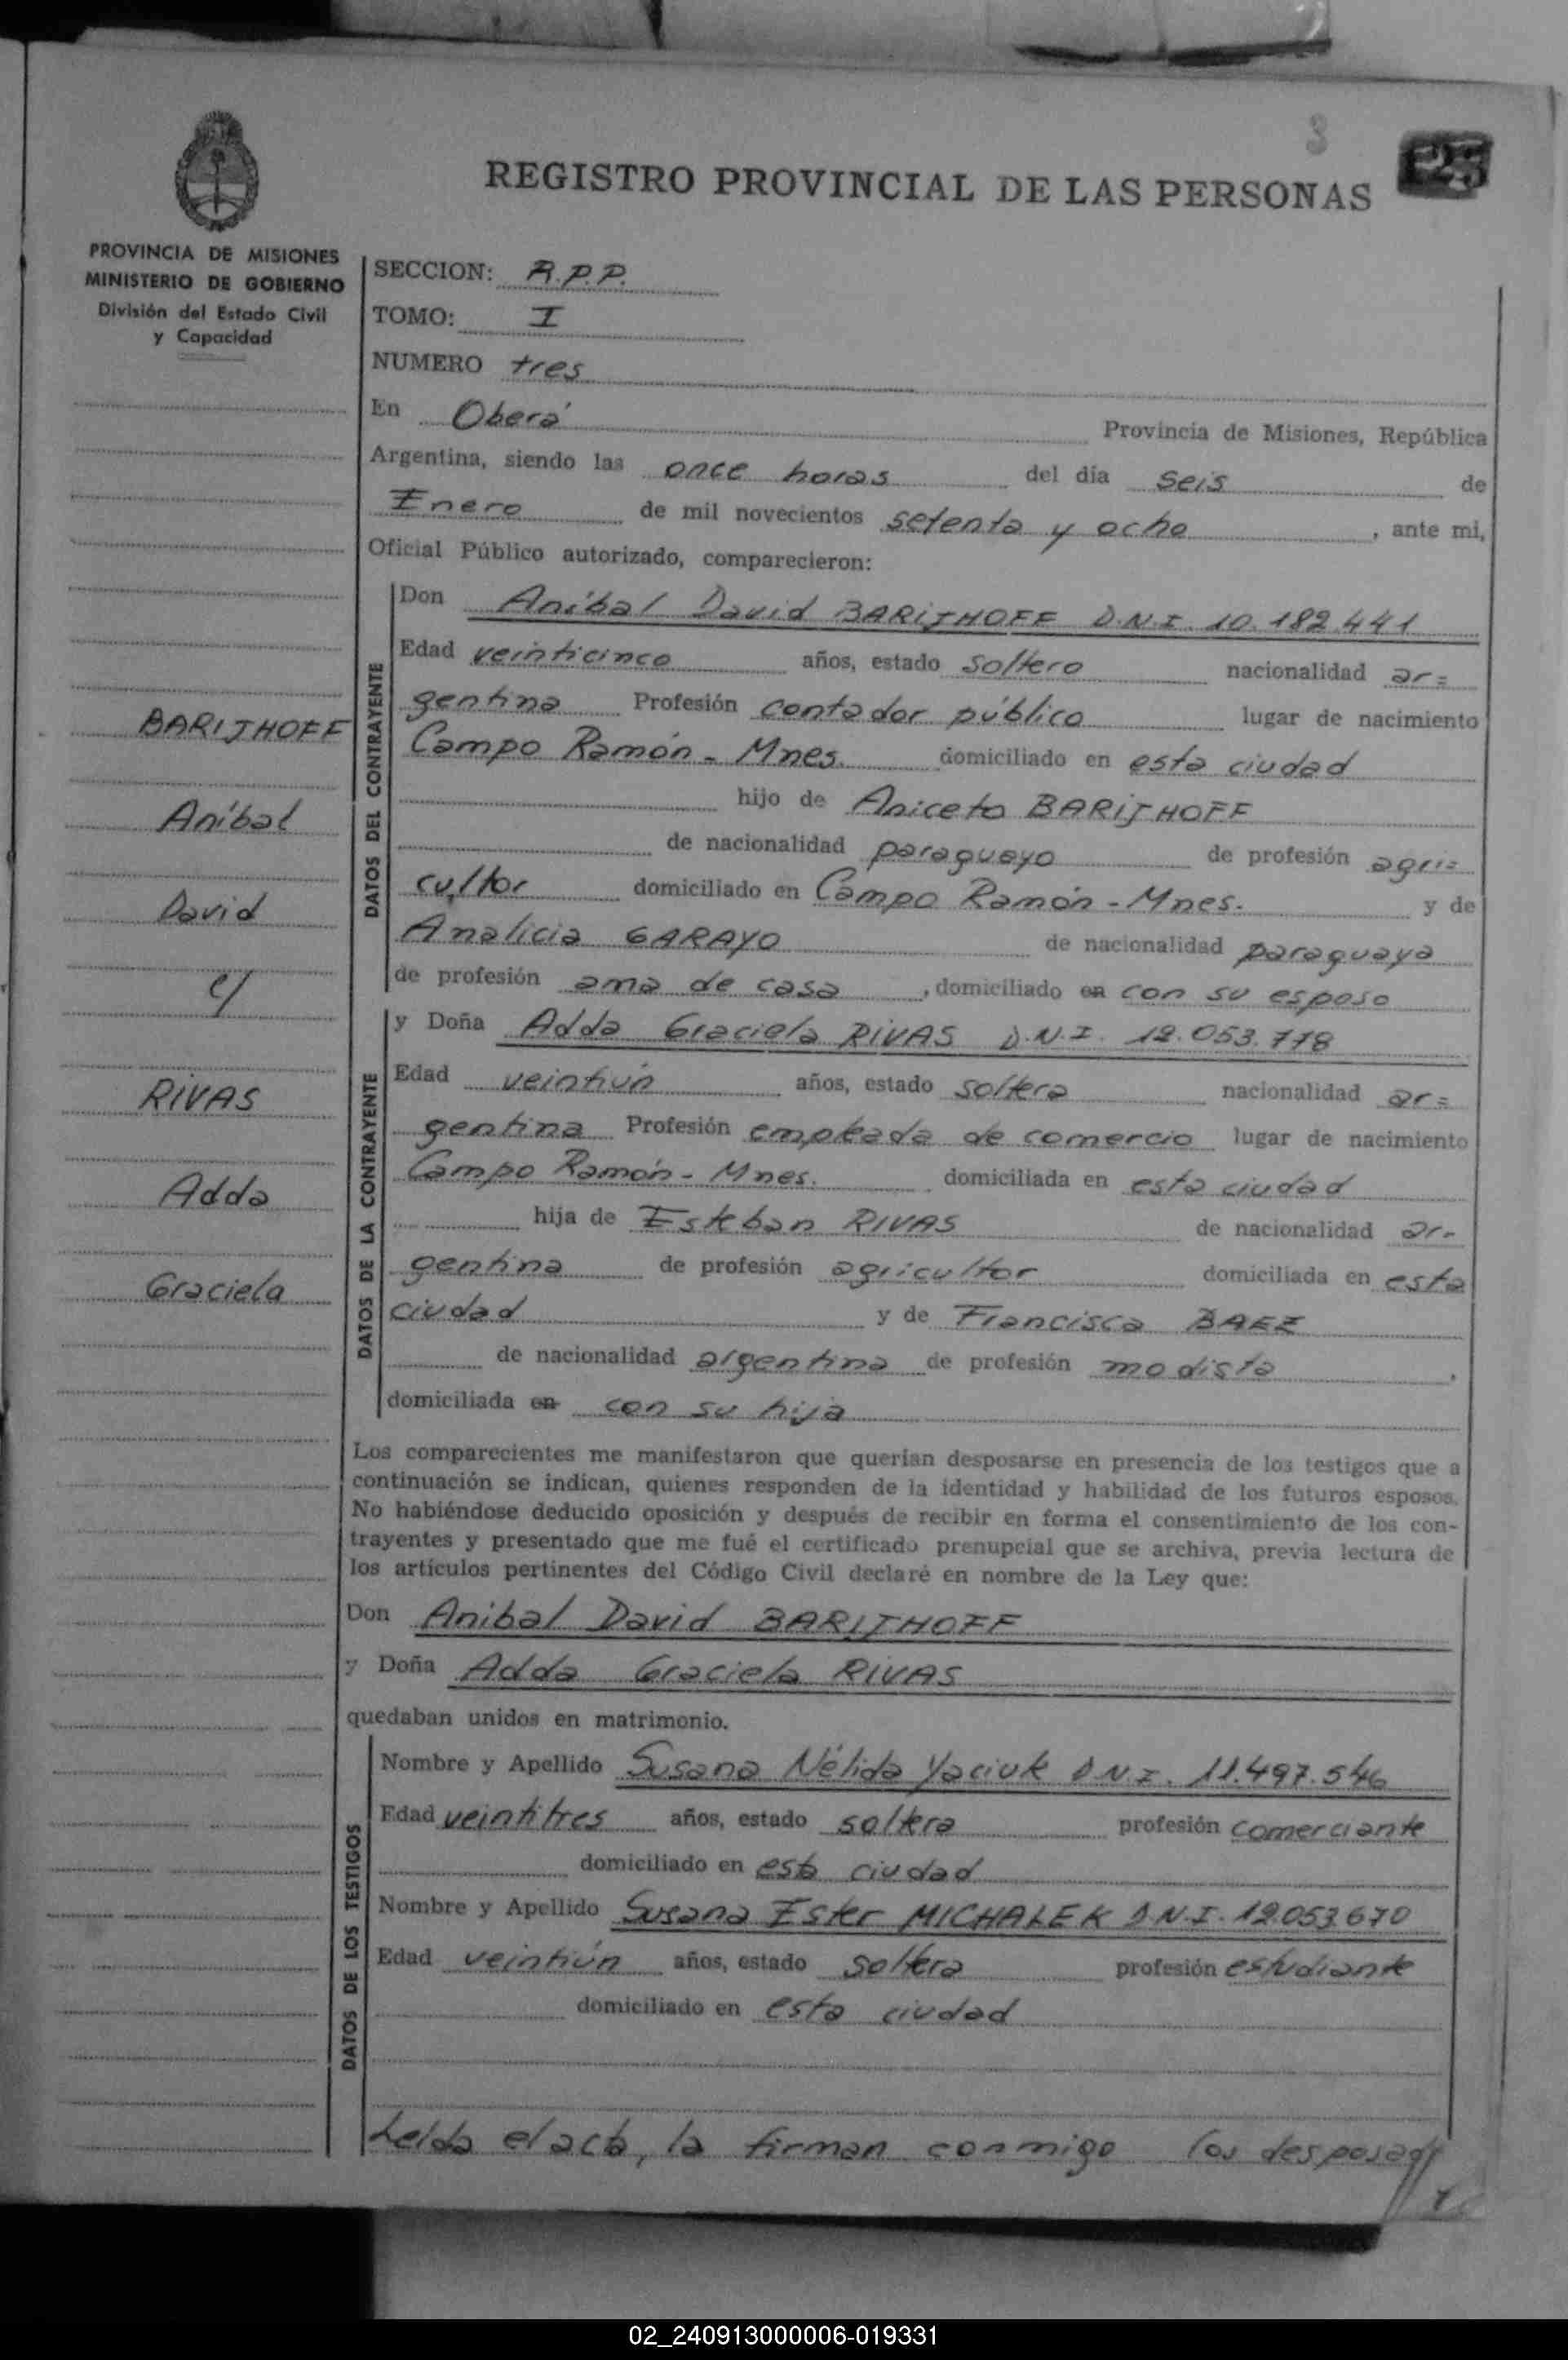 3
REGISTRO PROVINCIAL DE LAS PERSONAS
PROVINCIA DE MISIONES
MINISTERIO DE GOBIERNO
División del Estado Civil
y Capacidad
BARIJHOFF
Aníbal
David
c/
RIVAS
Adda
Graciela
SECCION: R.P.P.
TOMO: I
NUMERO tres
En Oberá Provincia de Misiones, República
Argentina, siendo las once horas del día seis de
Enero de mil novecientos setenta y ocho, ante mi,
Oficial Público autorizado, comparecieron:
DATOS DEL CONTRAYENTE
Don Aníbal David BARIJHOFF D.N.I. 10.182.441
Edad veinticinco años, estado soltero nacionalidad ar=
gentina Profesión contador público lugar de nacimiento
Campo Ramón - Mnes. domiciliado en esta ciudad
hijo de Aniceto BARIJHOFF
de nacionalidad paraguayo de profesión agri=
cultor domiciliado en Campo Ramón - Mnes. y de
Analicia GARAYO de nacionalidad paraguaya
de profesión ama de casa, domiciliado en con su esposo
DATOS DE LA CONTRAYENTE
y Doña Adda Graciela RIVAS D.N.I. 12.053.778
Edad veintiún años, estado soltera nacionalidad ar=
gentina Profesión empleada de comercio lugar de nacimiento
Campo Ramón - Mnes. domiciliada en esta ciudad
hija de Esteban RIVAS de nacionalidad ar-
gentina de profesión agricultor domiciliada en esta
ciudad y de Francisca BAEZ
de nacionalidad argentina de profesión modista,
domiciliada en con su hija
Los comparecientes me manifestaron que querían desposarse en presencia de los testigos que a
continuación se indican, quienes responden de la identidad y habilidad de los futuros esposos.
No habiéndose deducido oposición y después de recibir en forma el consentimiento de los con-
trayentes y presentado que me fué el certificado prenupcial que se archiva, previa lectura de
los artículos pertinentes del Código Civil declaré en nombre de la Ley que:
Don Anibal David BARIJHOFF
y Doña Adda Graciela RIVAS
quedaban unidos en matrimonio.
DATOS DE LOS TESTIGOS
Nombre y Apellido Susana Nélida Yaciuk D.N.I. 11.497.546
Edad veintitres años, estado soltera profesión comerciante
domiciliado en esta ciudad
Nombre y Apellido Susana Ester MICHALEK D.N.I. 12.053.670
Edad veintiún años, estado soltera profesión estudiante
domiciliado en esta ciudad
Leída el acta, la firman conmigo los desposados
02_240913000006-019331